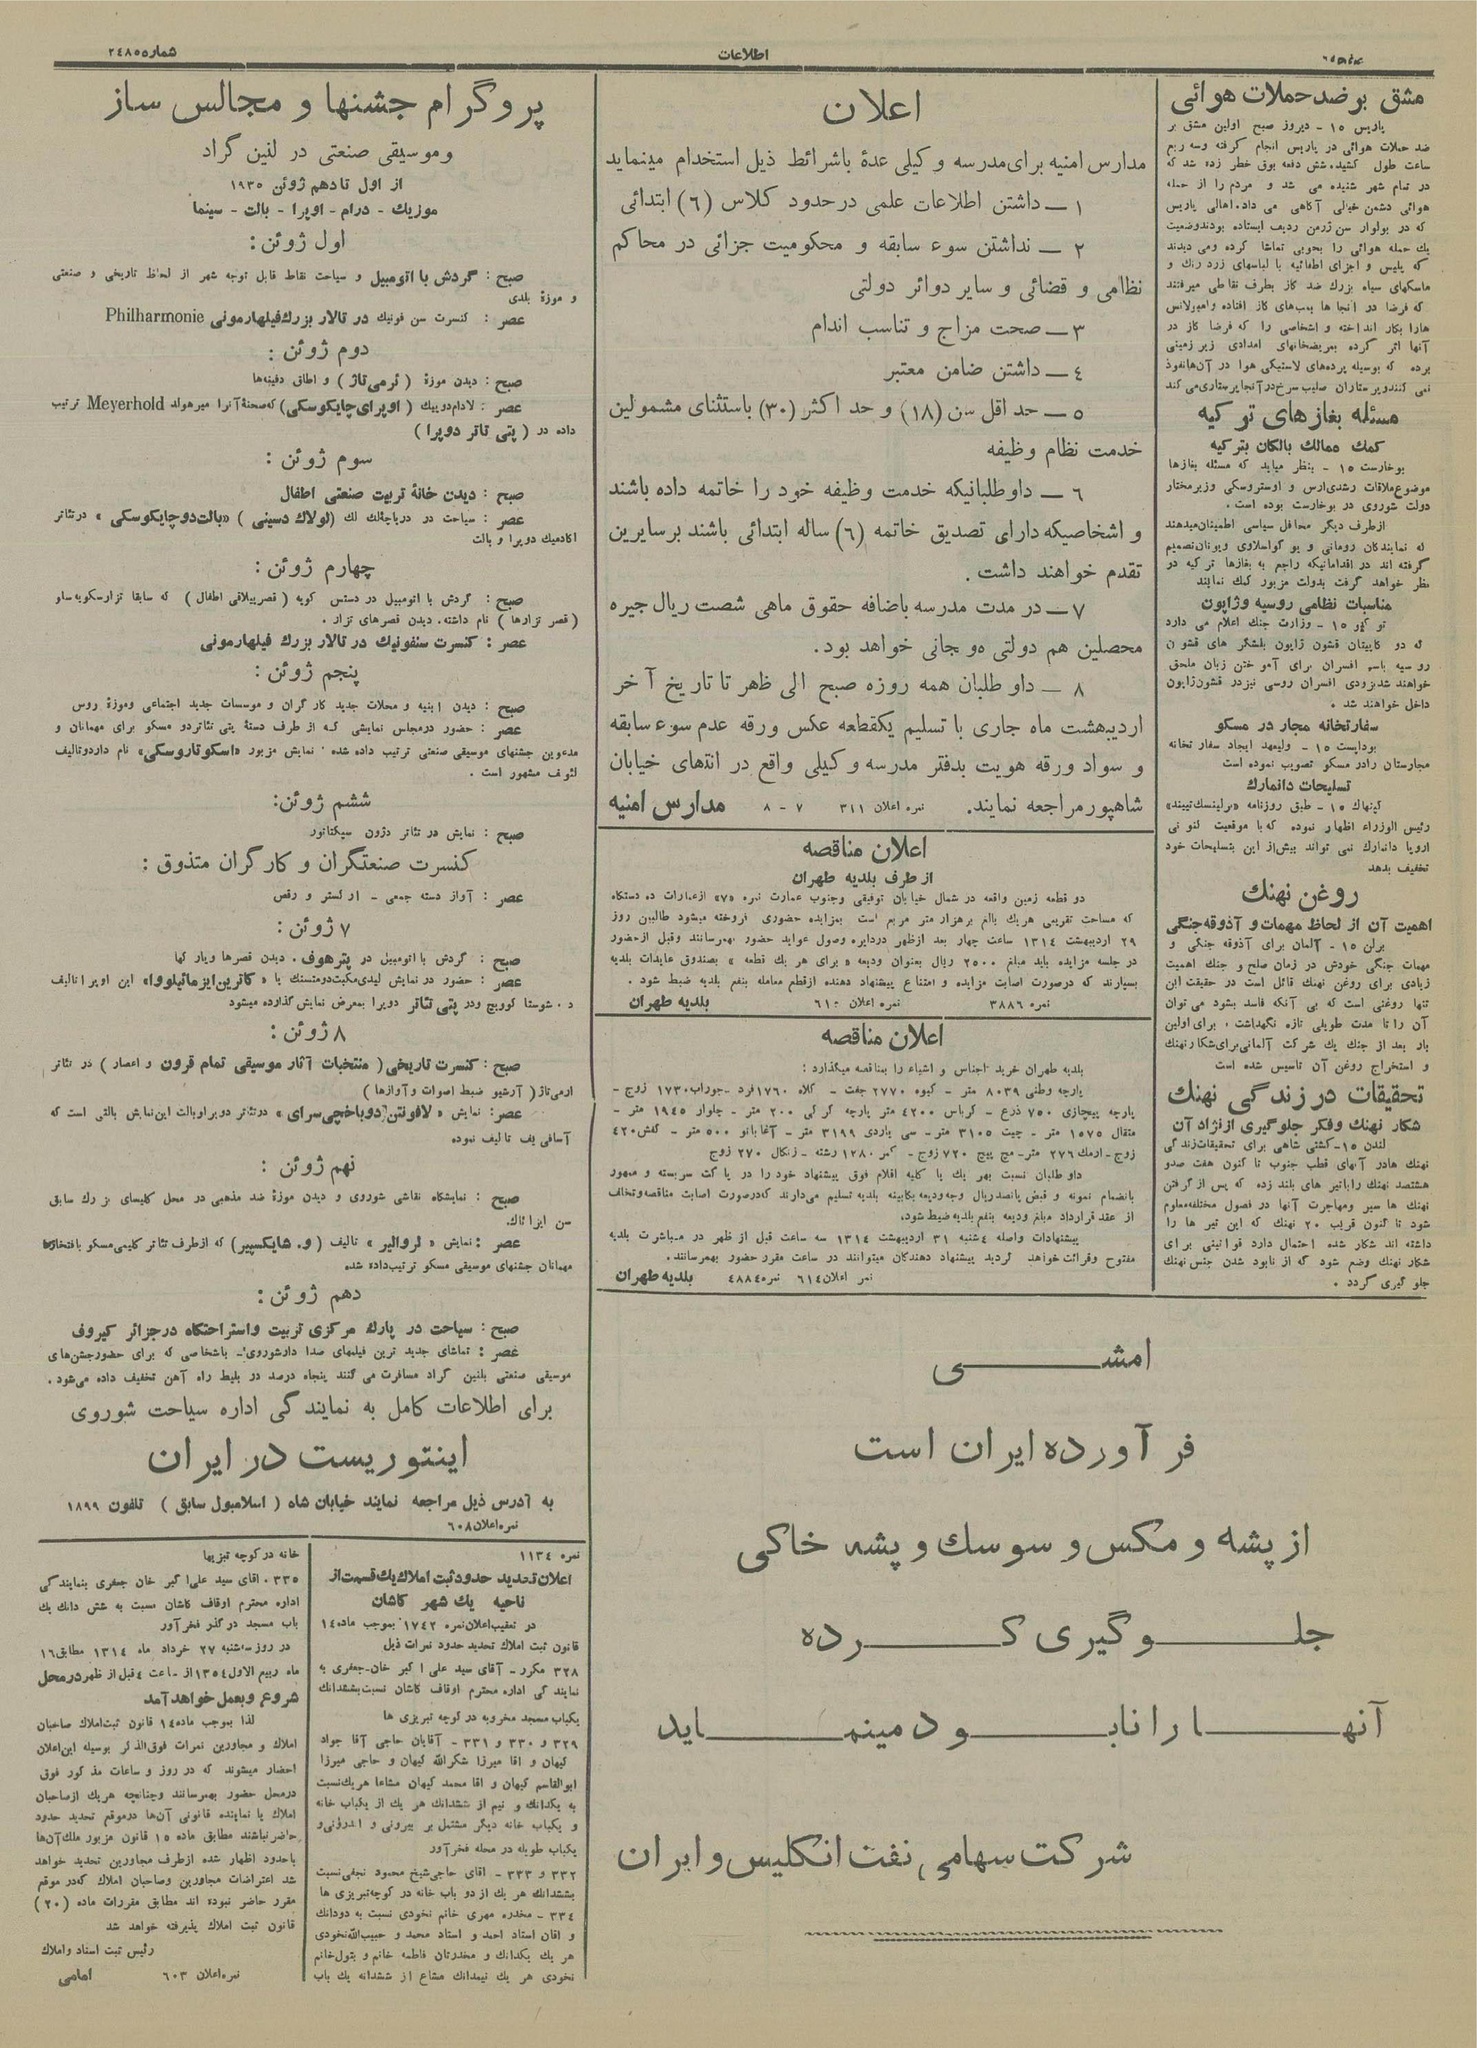 صفحه ٦
اطلاعات
شماره ٢٤٨٥
مشق بر ضد حملات هوائی
پاریس ١٥ - دیروز صبح اولین مشق بر
ضد حملات هوائی در پاریس انجام گرفته وسه ربع
ساعت طول کشید. شش دفعه بوق خطر زده شد که
در تمام شهر شنیده می شد و مردم را از حمله
هوائی دشمن خیالی آگاهی می داد. اهالی پاریس
که در بولوار سن ژرمن ردیف ایستاده بودند وضعیت
یك حمله هوائی را بخوبی تماشا کرده ومی دیدند
که پلیس و اجزای اطفائیه با لباسهای زرد رنك و
ماسکهای سیاه بزرك ضد گاز بطرف نقاطی میرفتند
که فرضا در آنجا ها بمب‌های گاز افتاده وامبولانس
هارا بکار انداخته و اشخاصی را که فرضا گاز در
آنها اثر کرده بمریضخانهای امدادی زیر زمینی
برده که بوسیله پرده‌های لاستیکی هوا در آن‌ها نفوذ
نمی کند و پرستاران صلیب سرخ در آنجا پرستاری می کند
مسئله بغازهای ترکیه
کمك ممالك بالکان بترکیه
بوخارست ١٥ - بنظر میاید که مسئله بغازها
موضوع ملاقات رشدی ارس و اوستروسکی وزیر مختار
دولت شوروی در بوخارست بوده است .
ازطرف دیگر محافل سیاسی اطمینان میدهند
که نمایندگان رومانی و یو گواسلاوی ویونان تصمیم
گرفته اند در اقداماتیکه راجع به بغازها ترکیه در
نظر خواهد گرفت بدولت مزبور کمك نمایند
مناسبات نظامی روسیه وژاپون
تو کیو ١٥ - وزارت جنك اعلام می دارد
که دو کاپیتان قشون ژاپون بلشگر های قشون
روسیه باسم افسران برای آموختن زبان ملحق
خواهند شد بزودی افسران روسی نیز در قشون ژاپون
داخل خواهند شد .
سفارتخانه مجار در مسکو
بوداپست ١٥ - ولیعهد ایجاد سفارتخانه
مجارستان را در مسکو تصویب نموده است
تسلیحات دانمارك
کپنهاك ١٥ - طبق روزنامه «برلینسك تیبند»
رئیس الوزراء اظهار نموده که با موقعیت کنونی
اروپا دانمارك نمی تواند بیش از این بتسلیحات خود
تخفیف بدهد
روغن نهنك
اهمیت آن از لحاظ مهمات و آذوقه جنگی
برلن ١٥ - آلمان برای آذوقه جنگی و
مهمات جنگی خودش در زمان صلح و جنك اهمیت
زیادی برای روغن نهنك قائل است در حقیقت این
تنها روغنی است که بی آنکه فاسد بشود می توان
آن را تا مدت طویلی تازه نگهداشت . برای اولین
بار بعد از جنك یك شرکت آلمانی برای شکار نهنك
و استخراج روغن آن تاسیس شده است
تحقیقات در زندگی نهنك
شکار نهنك وفکر جلوگیری از نژاد آن
لندن ١٥- کشتی شاهی برای تحقیقات زندگی
نهنك هادر آبهای قطب جنوب تا کنون هفت صدو
هشتصد نهنك را باتیر های بلند زده که پس از گرفتن
نهنك ها سیر ومهاجرت آنها در فصول مختلفه معلوم
شود تا کنون قریب ٢٠ نهنك که این تیر ها را
داشته اند شکار شده احتمال دارد قوانینی برای
شکار نهنك وضع شود که از نابود شدن جنس نهنك
جلو گیری گردد .
اعلان
مدارس امنیه برای مدرسه وکیلی عدهٔ باشرائط ذیل استخدام مینماید
١ – داشتن اطلاعات علمی در حدود کلاس (٦) ابتدائی
٢ – نداشتن سوء سابقه و محکومیت جزائی در محاکم
نظامی و قضائی و سایر دوائر دولتی
٣ – صحت مزاج و تناسب اندام
٤ – داشتن ضامن معتبر
٥ – حد اقل سن (١٨) و حد اکثر (٣٠) باستثنای مشمولین
خدمت نظام وظیفه
٦ – داوطلبانیکه خدمت وظیفه خود را خاتمه داده باشند
و اشخاصیکه دارای تصدیق خاتمه (٦) ساله ابتدائی باشند برسایرین
تقدم خواهند داشت .
٧ – در مدت مدرسه باضافه حقوق ماهی شصت ریال جیره
محصلین هم دولتی و مجانی خواهد بود.
٨ – داوطلبان همه روزه صبح الی ظهر تا تاریخ آخر
اردیبهشت ماه جاری با تسلیم یکقطعه عکس ورقه عدم سوء سابقه
و سواد ورقه هویت بدفتر مدرسه وکیلی واقع در انتهای خیابان
شاهپور مراجعه نمایند. نمره اعلان ٣١١ ٧ - ٨ مدارس امنیه
اعلان مناقصه
از طرف بلدیه طهران
دو قطعه زمین واقعه در شمال خیابان توفیقی وجنوب عمارت نمره «٧» ازعمارات ده دستگاه
که مساحت تقریبی هریك بالغ برهزار متر مربع است بمزایده حضوری فروخته میشود طالبین روز
٢٩ اردیبهشت ١٣١٤ ساعت چهار بعد ازظهر دردایره وصول عواید حضور بهمرسانند وقبل ازحضور
در جلسه مزایده باید مبلغ ٢٥٠٠ ریال بعنوان ودیعه « برای هر یك قطعه » بصندوق عایدات بلدیه
بسپارند که درصورت اصابت مزایده و امتناع پیشنهاد دهنده ازقطع معامله بنفع بلدیه ضبط شود .
نمره ٣٨٨٦ نمره اعلان ٦١٠ بلدیه طهران
اعلان مناقصه
بلدیه طهران خرید اجناس و اشیاء را بمناقصه میگذارد :
پارچه وطنی ٨٠٣٩ متر - گیوه ٢٧٧٠ جفت - کلاه ١٧٦٠فرد -جوراب١٧٣٠ زوج -
پارچه پیچازی ٧٥٠ ذرع - کرباس ٤٢٠٠ متر پارچه کرکی ٢٠٠ متر - چلوار ١٩٤٥ متر -
متقال ١٥٧٥ متر - چیت ٣١٠٥ متر- سی یاردی ٣١٩٩ متر - آغابانو ٥٠٠ متر - کفش ٤٢٠
زوج- ارمك ٢٧٦ متر- مچ پیچ ٧٢٠ زوج- کمر ١٢٨٠ رشته - زنکال ٢٧٠ زوج
داو طلبان نسبت بهر یك یا کلیه اقلام فوق پیشنهاد خود را در پاکت سربسته و ممهور
بانضمام نمونه و قبض پانصدریال وجه ودیعه بکابینه بلدیه تسلیم می‌دارند که درصورت اصابت مناقصه وتخلف
از عقد قرارداد مبلغ ودیعه بنفع بلدیه ضبط شود.
پیشنهادات واصله ٤شنبه ٣١ اردیبهشت ١٣١٤ سه ساعت قبل از ظهر در مباشرت بلدیه
مفتوح وقرائت خواهد گردید پیشنهاد دهندکان میتوانند در ساعت مقرر حضور بهمرسانند.
نمره اعلان ٦١٤ نمره ٤٨٨٤ بلدیه طهران
امشی
فرآورده ایران است
از پشه و مکس و سوسك و پشه خاکی
جلوگیری کرده
آنها را نابود مینماید
شرکت سهامی نفت انگلیس و ایران
پروگرام جشنها و مجالس ساز
وموسیقی صنعتی در لنین گراد
از اول تا دهم ژوئن ١٩٣٥
موزیك - درام - اوپرا - بالت - سینما
اول ژوئن :
صبح : گردش با اتومبیل و سیاحت نقاط قابل توجه شهر از لحاظ تاریخی و صنعتی
و موزهٔ بلدی
عصر : کنسرت سن فونیك در تالار بزرك فیلهارمونی Philharmonie
دوم ژوئن :
صبح : دیدن موزهٔ ( ئرمی‌تاژ ) و اطاق دفینه‌ها
عصر : لادام دوپیك ( اوپرای چایکوسکی) که صحنهٔ آنرا میرهولد Meyerhold ترتیب
داده در ( پتی تاتر دوپرا )
سوم ژوئن :
صبح : دیدن خانهٔ تربیت صنعتی اطفال
عصر : سیاحت در دریاچه‌لك لك (لولاك دسینی ) «بالت دوچایکوسکی » در تئاتر
اکادمیك دوپرا و بالت
چهارم ژوئن :
صبح : گردش با اتومبیل در دتسل کویه ( قصر ییلاقی اطفال ) که سابقا تزارسکویه ساو
( قصر تزارها ) نام داشته. دیدن قصرهای تزار .
عصر : کنسرت سنفونیك در تالار بزرك فیلهارمونی
پنجم ژوئن :
صبح : دیدن ابنیه و محلات جدید کارگران و موسسات جدید اجتماعی وموزهٔ روس
عصر : حضور در مجلس نمایشی که از طرف دستهٔ پتی تئاتر دو مسکو برای مهمانان و
مدعوین جشنهای موسیقی صنعتی ترتیب داده شده . نمایش مزبور «اسکوتاروسکی» نام دارد وتالیف
لئونف مشهور است .
ششم ژوئن:
صبح : نمایش در تئاتر دژون سپکتاتور
کنسرت صنعتگران و کارگران متذوق :
عصر : آواز دسته جمعی - ارکستر و رقص
٧ ژوئن :
صبح : گردش با اتومبیل در پترهوف. دیدن قصرها وپارکها
عصر : حضور در نمایش لیدی مکبت دومتسنك یا « کاترین ایزمائیلووا» این اوپرا تالیف
د . شوستا کوویچ ودر پتی تئاتر دوپرا بمعرض نمایش گذارده میشود
٨ ژوئن :
صبح : کنسرت تاریخی ( منتخبات آثار موسیقی تمام قرون و اعصار ) در تئاتر
ارمی‌تاژ ( آرشیو ضبط اصوات وآوازها )
عصر: نمایش « لافونتن دو باخچی سرای » در تئاتر دوپرا وبالت این نمایش بالتی است که
آسافی یف تالیف نموده
نهم ژوئن :
صبح : نمایشگاه نقاشی شوروی و دیدن موزهٔ ضد مذهبی در محل کلیسای بزرك سابق
سن ایزاك.
عصر : نمایش « لروالیر » تالیف (و. شایکسپیر) که از طرف تئاتر کلیمی مسکو بافتخار
مهمانان جشنهای موسیقی مسکو ترتیب داده شده
دهم ژوئن :
صبح : سیاحت در پارك مرکزی تربیت واستراحتگاه در جزائر کیروف
عصر : تماشای جدید ترین فیلمهای صدا دار شوروی- باشخاصی که برای حضور جشن‌های
موسیقی صنعتی بلنین گراد مسافرت می کنند پنجاه درصد در بلیط راه آهن تخفیف داده می‌شود.
برای اطلاعات کامل به نمایندگی اداره سیاحت شوروی
اینتوریست در ایران
به آدرس ذیل مراجعه نمایند خیابان شاه ( اسلامبول سابق ) تلفون ١٨٩٩
نمره اعلان ٦٠٨
نمره ١١٣٤
اعلان تحدید حدود ثبت املاك یك قسمت از
ناحیه یك شهر کاشان
در تعقیب اعلان نمره ١٧٤٢ بموجب ماده ١٤
قانون ثبت املاك تحدید حدود نمرات ذیل
٣٢٨ مکرر - آقای سید علی اکبر خان جعفری به
نمایندگی اداره محترم اوقاف کاشان نسبت بششدانك
یکباب مسجد مخروبه در کوچه تبریزی ها
٣٢٩ و ٣٣٠ و ٣٣١ - آقایان حاجی آقا جواد
کیهان و اقا میرزا شکرالله کیهان و حاجی میرزا
ابوالقاسم کیهان و اقا محمد کیهان مشاعا هریك نسبت
به یکدانك و نیم از ششدانك هر یك از یکباب خانه
و یکباب خانه دیگر مشتمل بر بیرونی و اندرونی و
یکباب طویله در محله فخرآور
٣٣٢ و ٣٣٣ - اقای حاجی شیخ محمود نجفی نسبت
بششدانك هر یك از دو باب خانه در کوچه تبریزی ها
٣٣٤ - مخدره مهری خانم نخودی نسبت به دودانك
و اقان استاد احمد و استاد محمد و حبیب الله نخودی
هر یك یکدانك و مخدرتان فاطمه خانم و بتول خانم
نخودی هر یك نیمدانك مشاع از ششدانه یك باب
خانه در کوچه تبریزیها
٣٣٥ . اقای سید علی اکبر خان جعفری بنمایندگی
اداره محترم اوقاف کاشان نسبت به شش دانك یك
باب مسجد در گذر فخر آور
در روز سه‌شنبه ٢٧ خرداد ماه ١٣١٤ مطابق ١٦
ماه ربیع الاول ١٣٥٤ از ساعت ٤ قبل از ظهر در محل
شروع وبعمل خواهد آمد
لذا بموجب ماده ١٤ قانون ثبت املاك صاحبان
املاك و مجاورین نمرات فوق الذکر بوسیله این اعلان
احضار میشوند که در روز و ساعات مذکور فوق
درمحل حضور بهمرسانند وچنانچه هریك ازصاحبان
املاك یا نماینده قانونی آن‌ها درموقع تحدید حدود
حاضر نباشند مطابق ماده ١٥ قانون مزبور ملك آن‌ها
باحدود اظهار شده ازطرف مجاورین تحدید خواهد
شد اعتراضات مجاورین وصاحبان املاك که در موقع
مقرر حاضر نبوده اند مطابق مقررات ماده (٢٠)
قانون ثبت املاك پذیرفته خواهد شد
رئیس ثبت اسناد و املاك
نمره اعلان ٦٠٣ امامی